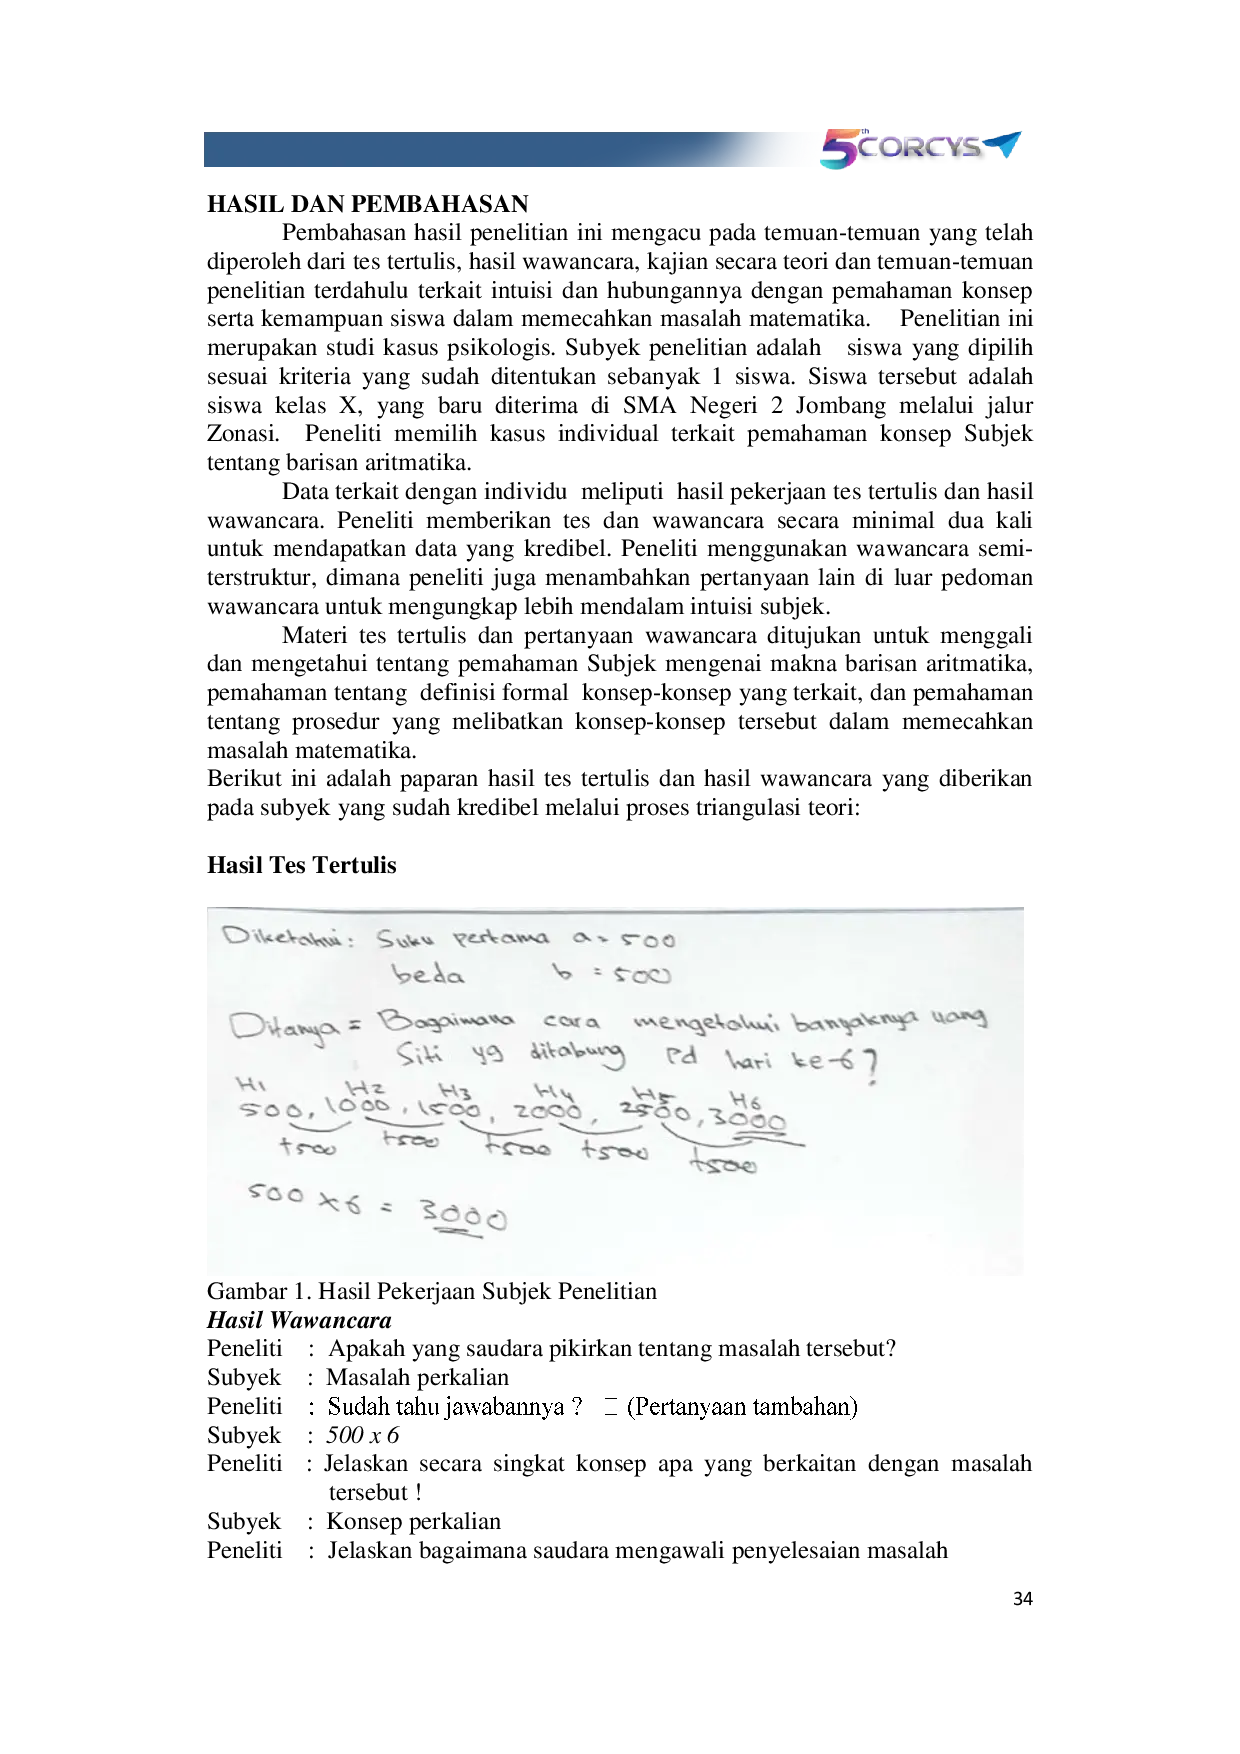 5th CORCYS
HASIL DAN PEMBAHASAN
Pembahasan hasil penelitian ini mengacu pada temuan-temuan yang telah
diperoleh dari tes tertulis, hasil wawancara, kajian secara teori dan temuan-temuan
penelitian terdahulu terkait intuisi dan hubungannya dengan pemahaman konsep
serta kemampuan siswa dalam memecahkan masalah matematika. Penelitian ini
merupakan studi kasus psikologis. Subyek penelitian adalah siswa yang dipilih
sesuai kriteria yang sudah ditentukan sebanyak 1 siswa. Siswa tersebut adalah
siswa kelas X, yang baru diterima di SMA Negeri 2 Jombang melalui jalur
Zonasi. Peneliti memilih kasus individual terkait pemahaman konsep Subjek
tentang barisan aritmatika.
Data terkait dengan individu meliputi hasil pekerjaan tes tertulis dan hasil
wawancara. Peneliti memberikan tes dan wawancara secara minimal dua kali
untuk mendapatkan data yang kredibel. Peneliti menggunakan wawancara semi-
terstruktur, dimana peneliti juga menambahkan pertanyaan lain di luar pedoman
wawancara untuk mengungkap lebih mendalam intuisi subjek.
Materi tes tertulis dan pertanyaan wawancara ditujukan untuk menggali
dan mengetahui tentang pemahaman Subjek mengenai makna barisan aritmatika,
pemahaman tentang definisi formal konsep-konsep yang terkait, dan pemahaman
tentang prosedur yang melibatkan konsep-konsep tersebut dalam memecahkan
masalah matematika.
Berikut ini adalah paparan hasil tes tertulis dan hasil wawancara yang diberikan
pada subyek yang sudah kredibel melalui proses triangulasi teori:
Hasil Tes Tertulis
Diketahui: Suku pertama a = 500
beda b = 500
Ditanya = Bagaimana cara mengetahui banyaknya uang
Siti yg ditabung pd hari ke-6?
H1 H2 H3 H4 H5 H6
500, 1000, 1500, 2000, 2500, 3000
+500 +500 +500 +500 +500
500 x 6 = 3000
Gambar 1. Hasil Pekerjaan Subjek Penelitian
Hasil Wawancara
Peneliti : Apakah yang saudara pikirkan tentang masalah tersebut?
Subyek : Masalah perkalian
Peneliti : Sudah tahu jawabannya ? (Pertanyaan tambahan)
Subyek : 500 x 6
Peneliti : Jelaskan secara singkat konsep apa yang berkaitan dengan masalah
tersebut !
Subyek : Konsep perkalian
Peneliti : Jelaskan bagaimana saudara mengawali penyelesaian masalah
34